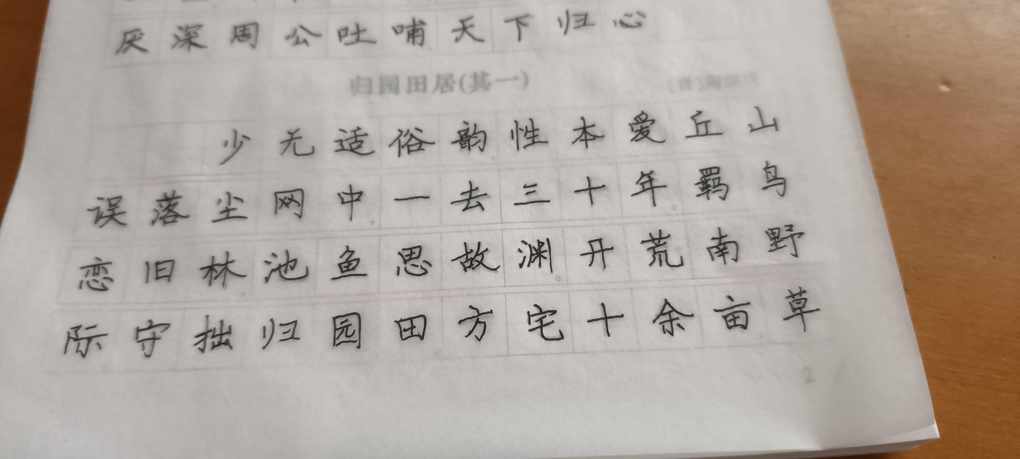 厌深周公吐哺天下归心
归园田居(其一)
少无适俗韵性本爱丘山
误落尘网中一去三十年羁鸟
恋旧林池鱼思故渊开荒南野
际守拙归园田方宅十余亩草
2